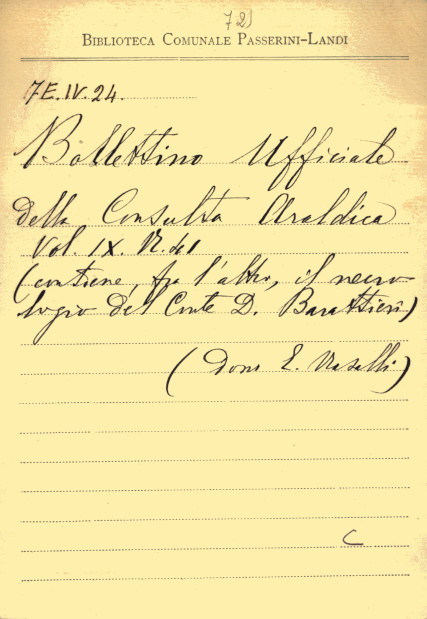 721
BIBLIOTECA COMUNALE PASSERINI-LANDI
7E.IV.24.
Bollettino Ufficiale
della Consulta Araldica
Vol. IX. N. 41
(contiene, fra l'altro, il necro
logio del Conte D. Barattieri)
(Dono E. Nasalli)
C